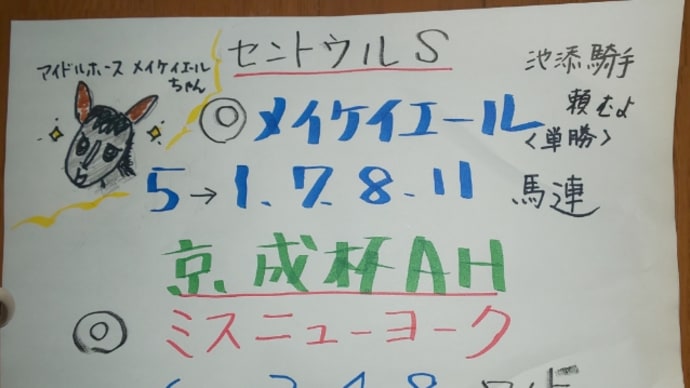 セントウルS
アイドルホース メイケイエール
ちゃん
池添騎手
頼むよ
<単勝>
◎メイケイエール
5→1.7.8.11 馬連
京成杯AH
◎ミスニューヨーク